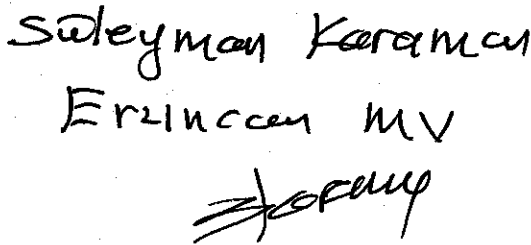 Süleyman Karaman
Erzincan MV